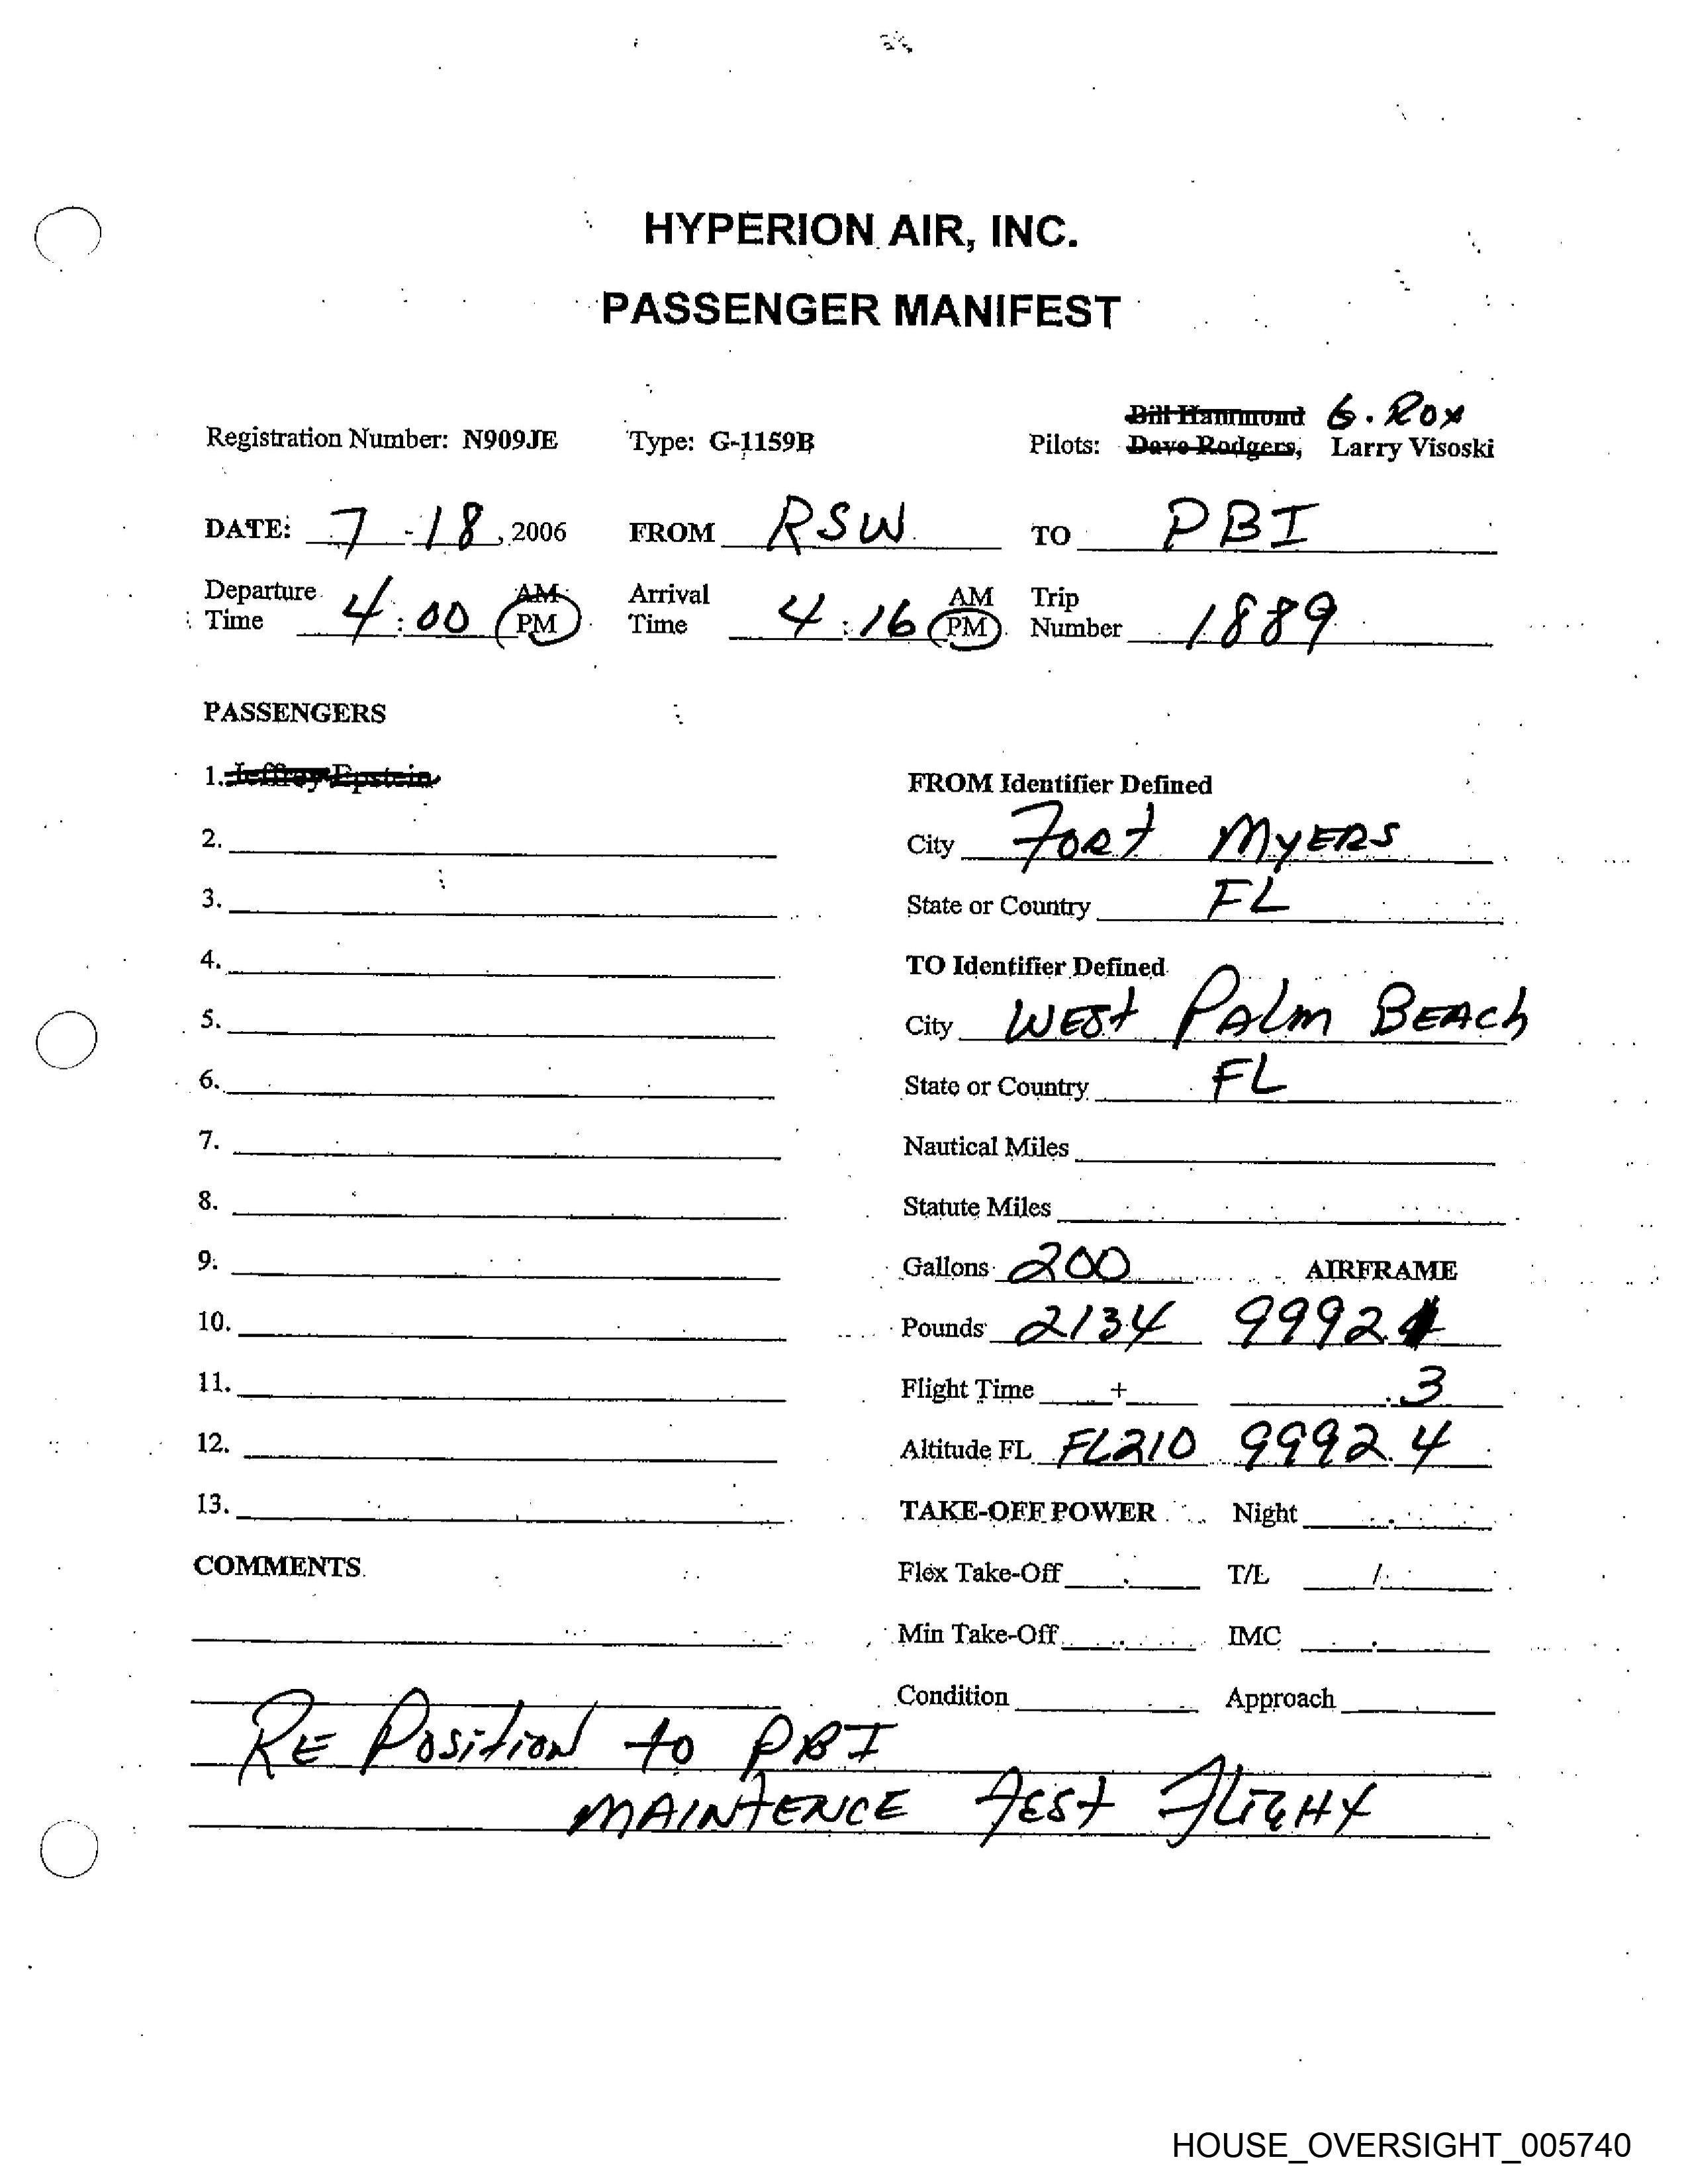 HYPERION AIR, INC.
PASSENGER MANIFEST
Bill Hammond G. Rox
Registration Number: N909JE Type: G-1159B Pilots: Dave Rodgers, Larry Visoski
DATE: 7-18, 2006 FROM RSW TO PBI
Departure Time 4:00 AM PM Arrival Time 4:16 AM PM Trip Number 1889
PASSENGERS
1. Jeffrey Epstein
FROM Identifier Defined
2.
City FORT MYERS
3.
State or Country FL
4.
TO Identifier Defined
5.
City WEST PALM BEACH
6.
State or Country FL
7.
Nautical Miles
8.
Statute Miles
9.
Gallons 200 AIRFRAME
10.
Pounds 2134 9992.
11.
Flight Time + .3
12.
Altitude FL FL210 9992.4
13.
TAKE-OFF POWER Night
COMMENTS
Flex Take-Off T/L /
Min Take-Off IMC
Condition Approach
RE POSITION to PBI
MAINTENCE TEST FLIGHT
HOUSE_OVERSIGHT_005740